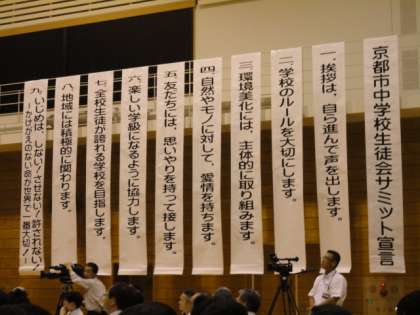 京都市中学校生徒会サミット宣言
一．挨拶は、自ら進んで声を出します。
二．学校のルールを大切にします。
三．環境美化には、主体的に取り組みます。
四．自然やモノに対して、愛情を持ちます。
五．友だちには、思いやりを持って接します。
六．楽しい学級になるように協力します。
七．全校生徒が誇れる学校を目指します。
八．地域には積極的に関わります。
九．いじめは、しない！させない！許されない！
ーかけがえのない命が世界で一番大切！ー